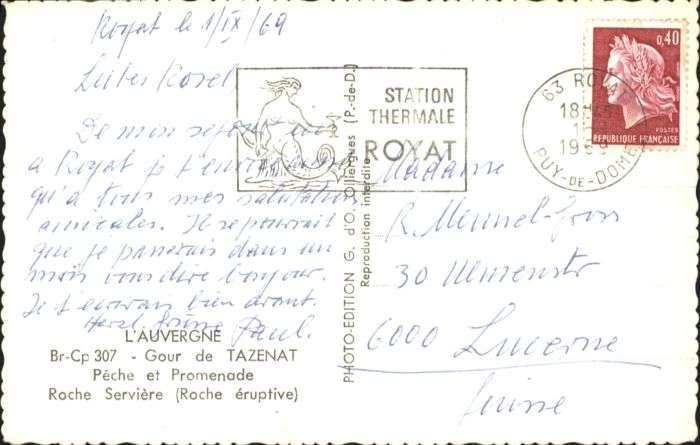 Royat le 1/IX/69
Liebes Rosel
De mon séjour ici
a Royat je t'envoie ainsi
qu'à tous mes salutations
amicales. Il se pourrait
que je passerais dans un
mois vous dire bonjour.
Je t'écrirais bien avant.
Herzl. Grüsse Paul.
L'AUVERGNE
Br-Cp 307 - Gour de TAZENAT
Pêche et Promenade
Roche Servière (Roche éruptive)
PHOTO-EDITION G. d'O. Olliergues (P.-de-D.)
Reproduction interdite
STATION
THERMALE
ROYAT
63 ROYAT
18H
1969
PUY-DE-DOME
0,40
POSTES
REPUBLIQUE FRANÇAISE
Madame
R.
30
6000 Lucerne
Suisse